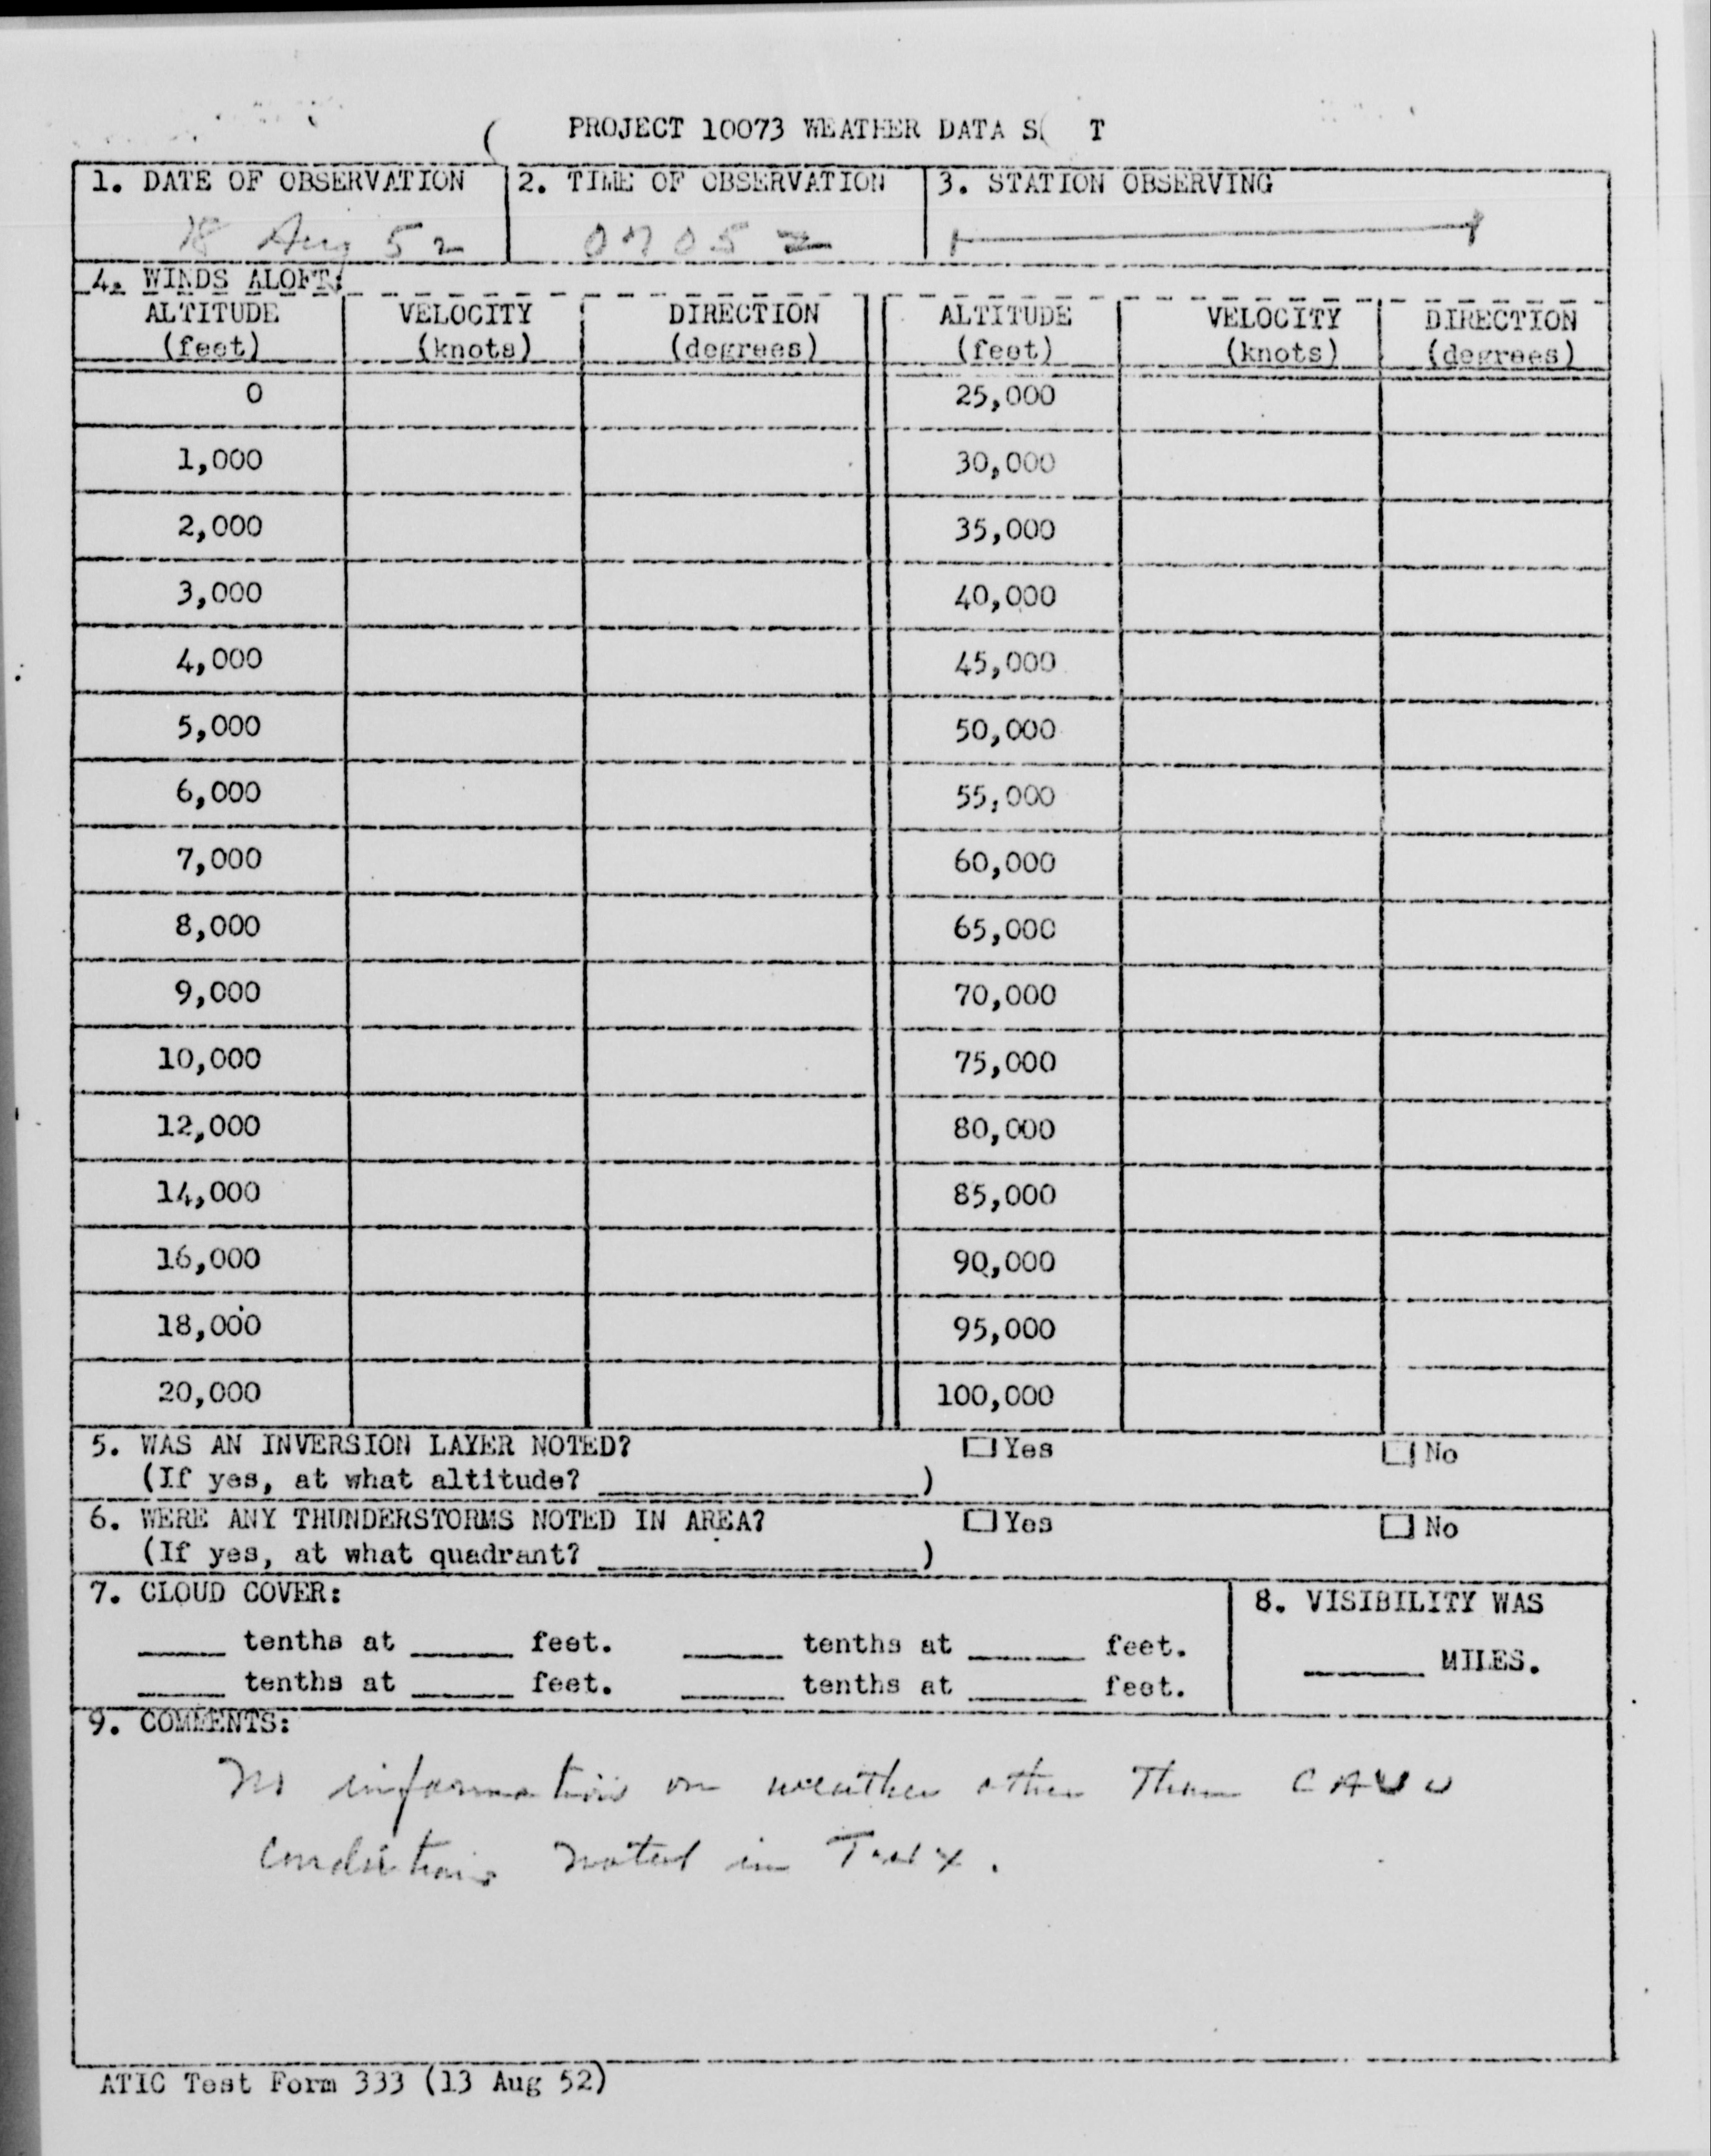 PROJECT 10073 WEATHER DATA S T
1. DATE OF OBSERVATION 2. TIME OF OBSERVATION 3. STATION OBSERVING
18 Aug 52 0705 Z
4. WINDS ALOFT:
ALTITUDE VELOCITY DIRECTION ALTITUDE VELOCITY DIRECTION
(feet) (knots) (degrees) (feet) (knots) (degrees)
0 25,000
1,000 30,000
2,000 35,000
3,000 40,000
4,000 45,000
5,000 50,000
6,000 55,000
7,000 60,000
8,000 65,000
9,000 70,000
10,000 75,000
12,000 80,000
14,000 85,000
16,000 90,000
18,000 95,000
20,000 100,000
5. WAS AN INVERSION LAYER NOTED? Yes No
(If yes, at what altitude? )
6. WERE ANY THUNDERSTORMS NOTED IN AREA? Yes No
(If yes, at what quadrant? )
7. CLOUD COVER: 8. VISIBILITY WAS
tenths at feet. tenths at feet. MILES.
tenths at feet. tenths at feet.
9. COMMENTS:
No information on weather other than CAVU
conditions noted in
ATIC Test Form 333 (13 Aug 52)